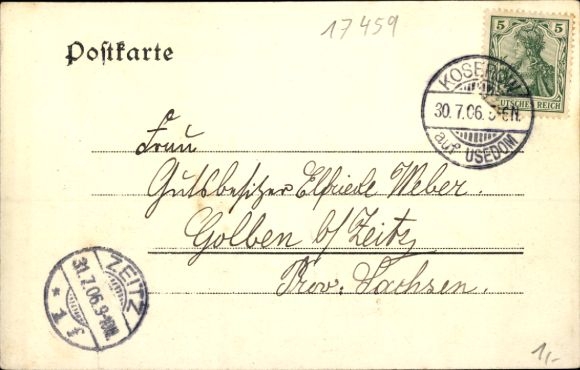 17459
Postkarte
5 5
DEUTSCHES REICH
KOSEROW
30.7.06. 5-6N.
auf USEDOM
Frau
Gutsbesitzer Elfriede Weber.
Golben b/ Zeitz
Prov. Sachsen.
ZEITZ
31.7.06. 9-10V.
* 1 f
1,-